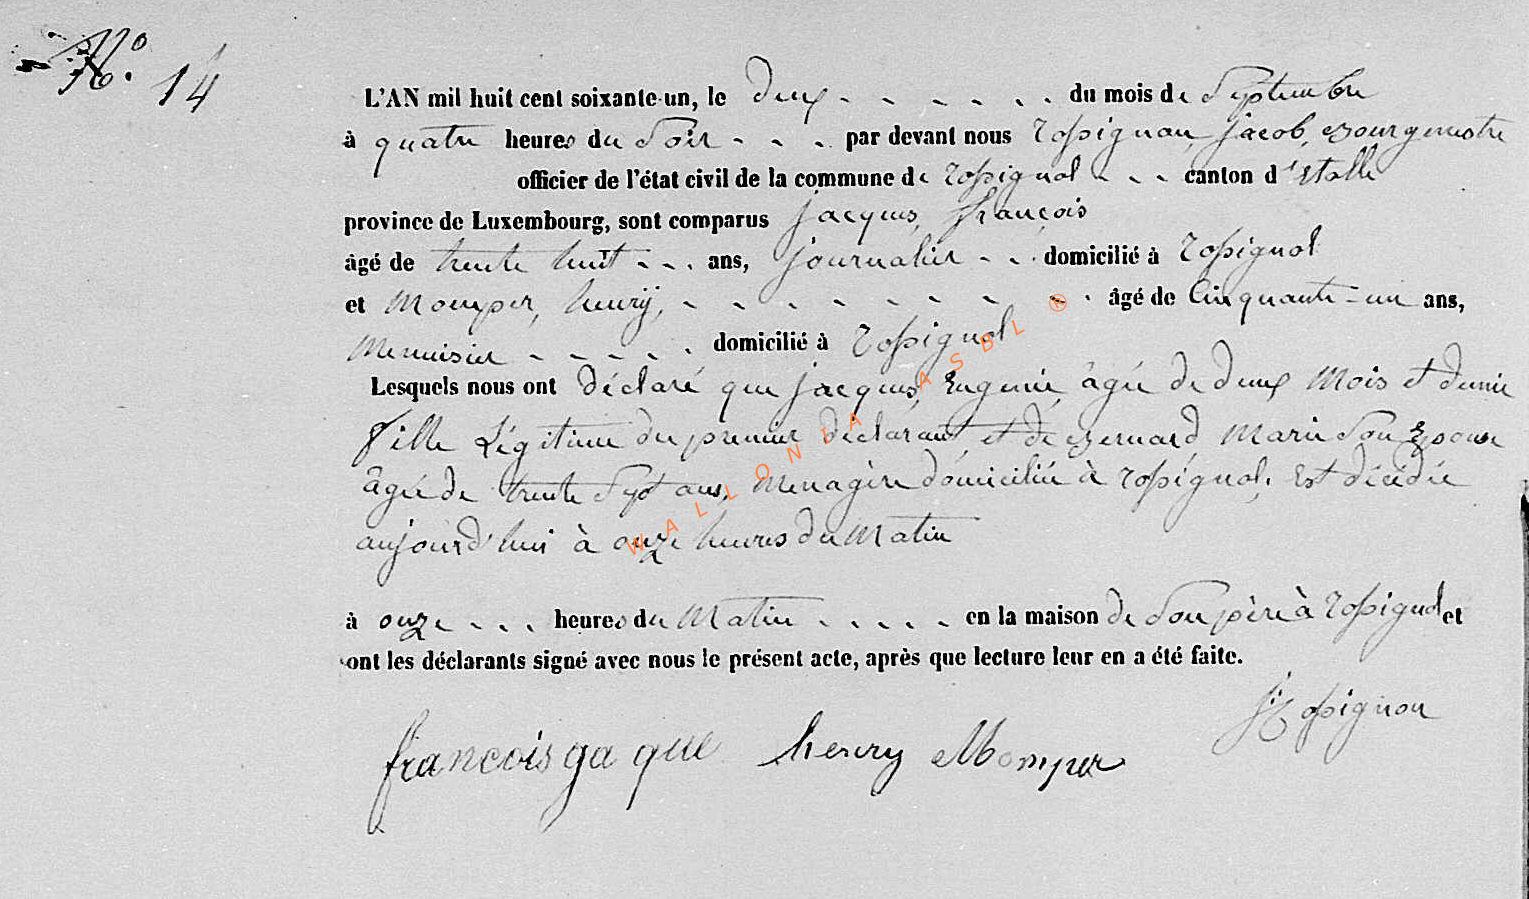 N° 14
L'AN mil huit cent soixante-un, le Deux - - - - - - du mois de Septembre
à quatre heures du Soir - - - par devant nous Rossignon, jacob, Bourgmestre
officier de l'état civil de la commune de Rossignol - - - canton d'Etalle
province de Luxembourg, sont comparus jacques, françois
âgé de trente huit - - - ans, journalier - - domicilié à Rossignol
et Momper, henry, - - - - - - - - - âgé de Cinquante-un ans,
Menuisier - - - - - domicilié à Rossignol
Lesquels nous ont déclaré que jacques, Eugenie, âgée de deux Mois et demie
fille Légitime du premier déclarant et de Bernard Marie Son Epouse
âgée de trente Sept ans, Menagère domiciliée à Rossignol, Est décédée
aujourd'hui à onze heures du Matin
à onze - - - heures du Matin - - - - - en la maison de Son père à Rossignol et
ont les déclarants signé avec nous le présent acte, après que lecture leur en a été faite.
j: Rossignon
francois ga que henry Momper
WALLONIA ASBL ©